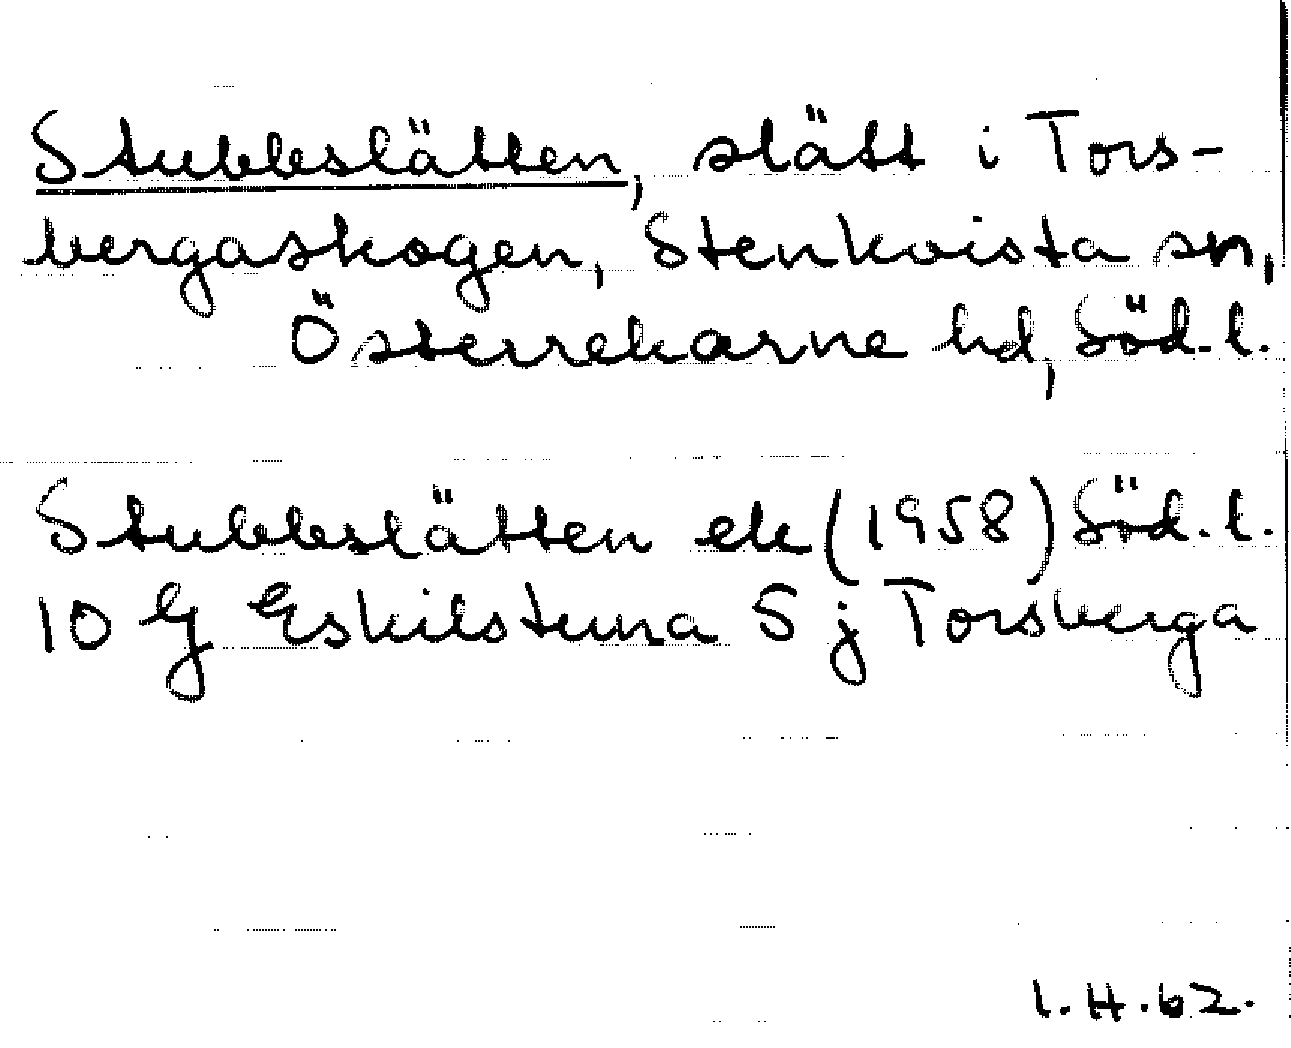 Stubbslätten, slätt i Tors-
bergaskogen, Stenkvista sn,
Österrekarne hd, Söd. l.
Stubbslätten ek (1958) Söd. l.
10 G Eskilstuna S j Torsberga
I. H. 62.